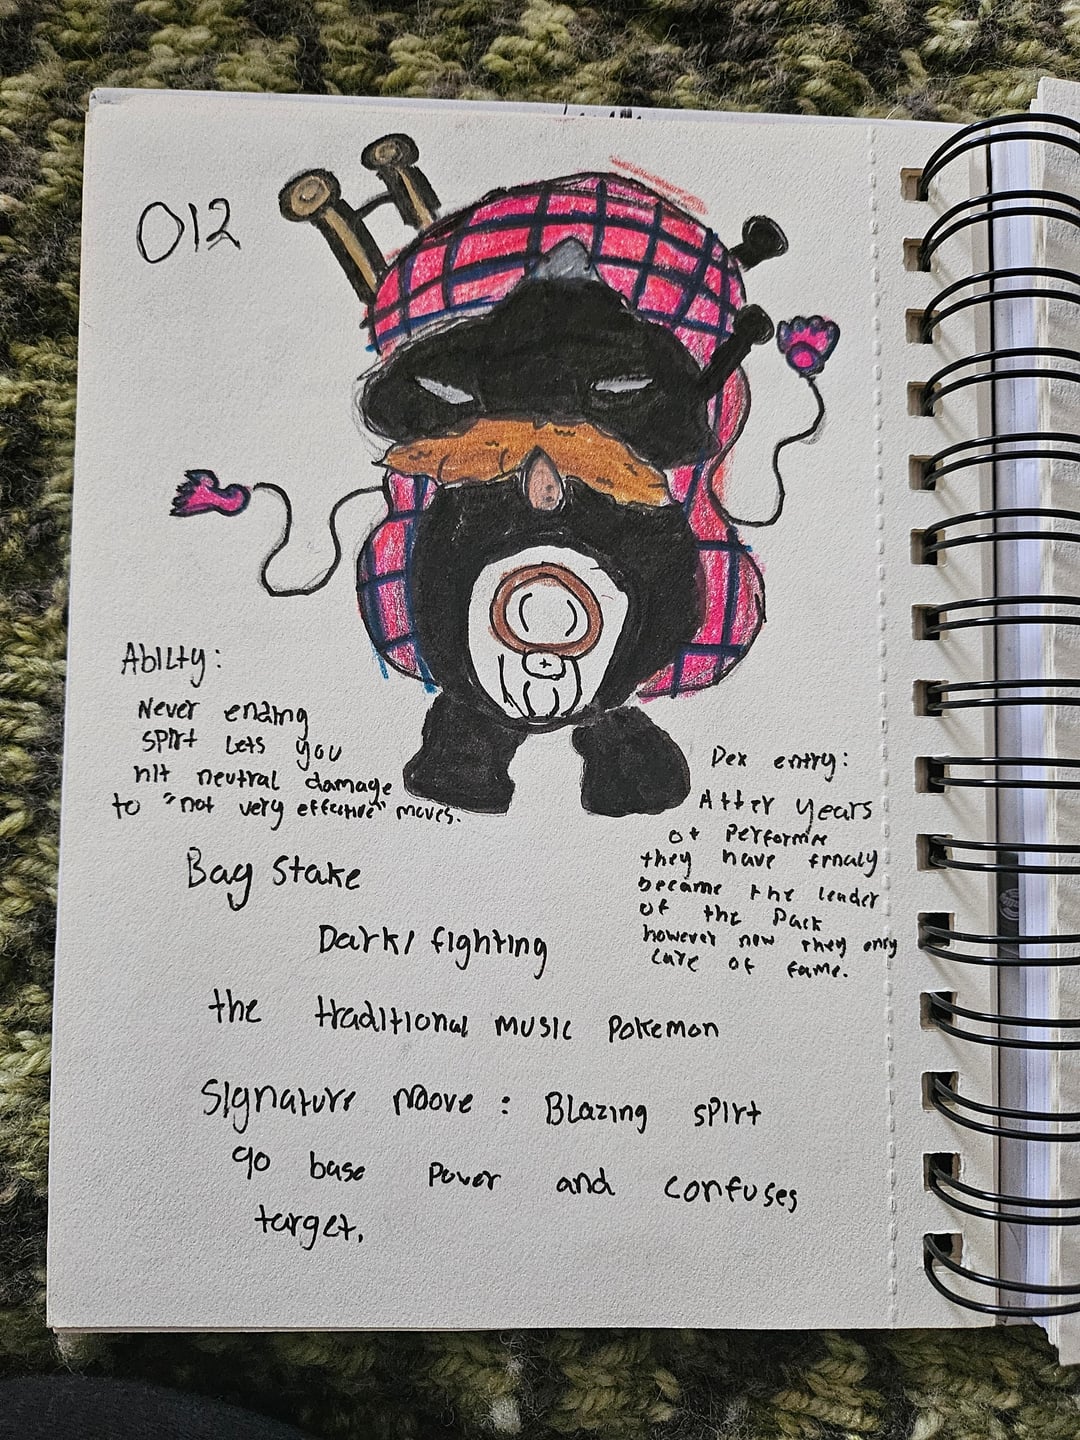 012
Abilty:
Never ending
spirt lets you
hit neutral damage
to "not very effective" moves.
Dex entry:
After years
of performin
they have finaly
became the leader
of the pack
however now they only
care of fame.
Bag Stake
Dark/fighting
the traditional music pokemon
Signature Moove: Blazing spirt
90 base power and confuses
target.